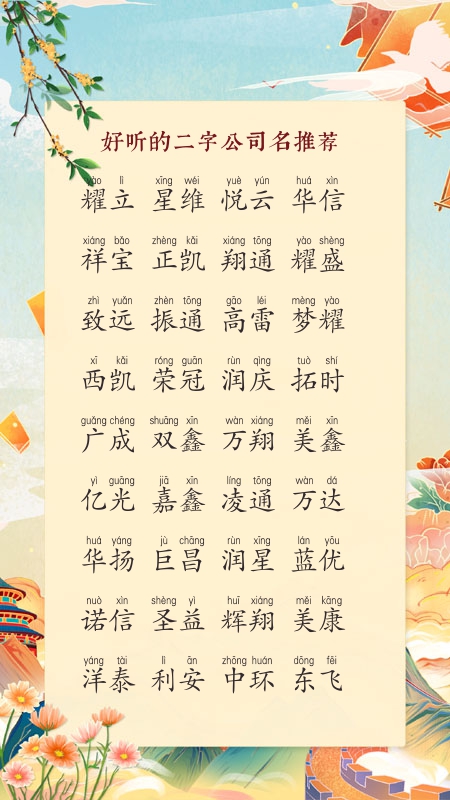 好听的二字公司名推荐
yào lì xīng wéi yuè yún huá xìn
耀立 星维 悦云 华信
xiáng bǎo zhèng kǎi xiáng tōng yào shèng
祥宝 正凯 翔通 耀盛
zhì yuǎn zhèn tōng gāo léi mèng yào
致远 振通 高雷 梦耀
xī kǎi róng guān rùn qìng tuò shí
西凯 荣冠 润庆 拓时
guǎng chéng shuāng xīn wàn xiáng měi xīn
广成 双鑫 万翔 美鑫
yì guāng jiā xīn líng tōng wàn dá
亿光 嘉鑫 凌通 万达
huá yáng jù chāng rùn xīng lán yōu
华扬 巨昌 润星 蓝优
nuò xìn shèng yì huī xiáng měi kāng
诺信 圣益 辉翔 美康
yáng tài lì ān zhōng huán dōng fēi
洋泰 利安 中环 东飞